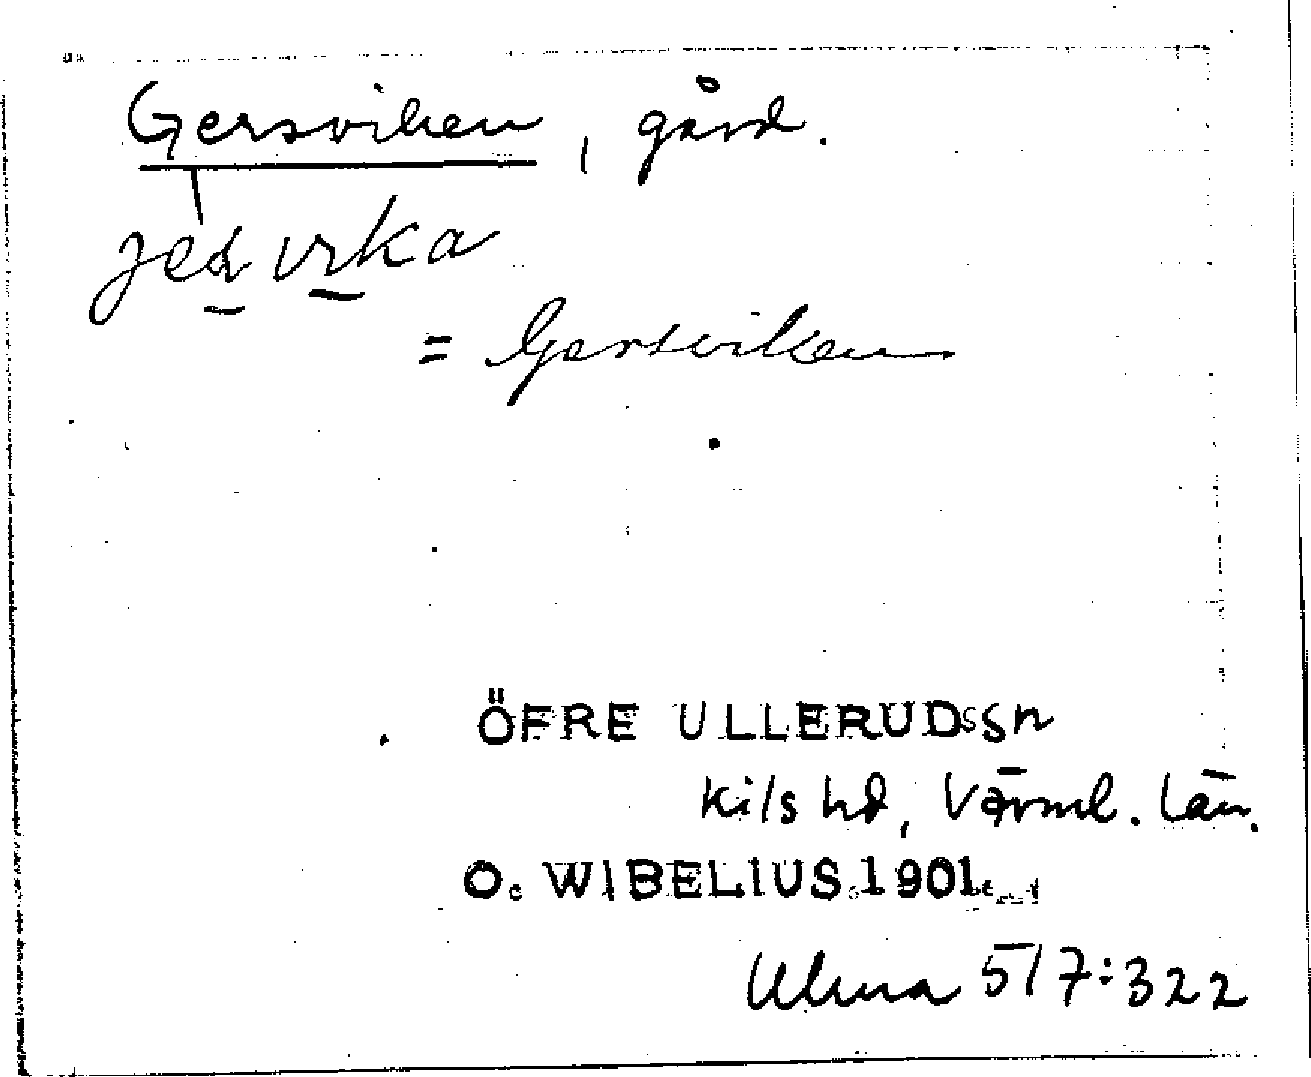 Gersviken, gård.
= Gersviken
ÖFRE ULLERUD sn
Kils hd, Värml. län.
O. WIBELIUS 1901
Ulma 517:322